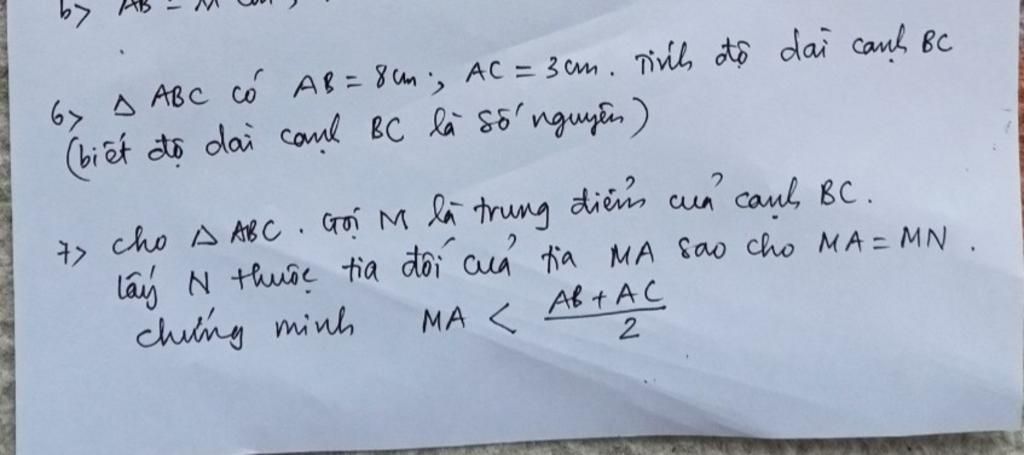 b> AB =
6> Δ ABC có AB = 8cm; AC = 3cm. Tính độ dài cạnh BC
(biết độ dài cạnh BC là số nguyên)
7> Cho Δ ABC. Gọi M là trung điểm của cạnh BC.
Lấy N thuộc tia đối của tia MA sao cho MA = MN.
chứng minh MA < \frac{AB + AC}{2}